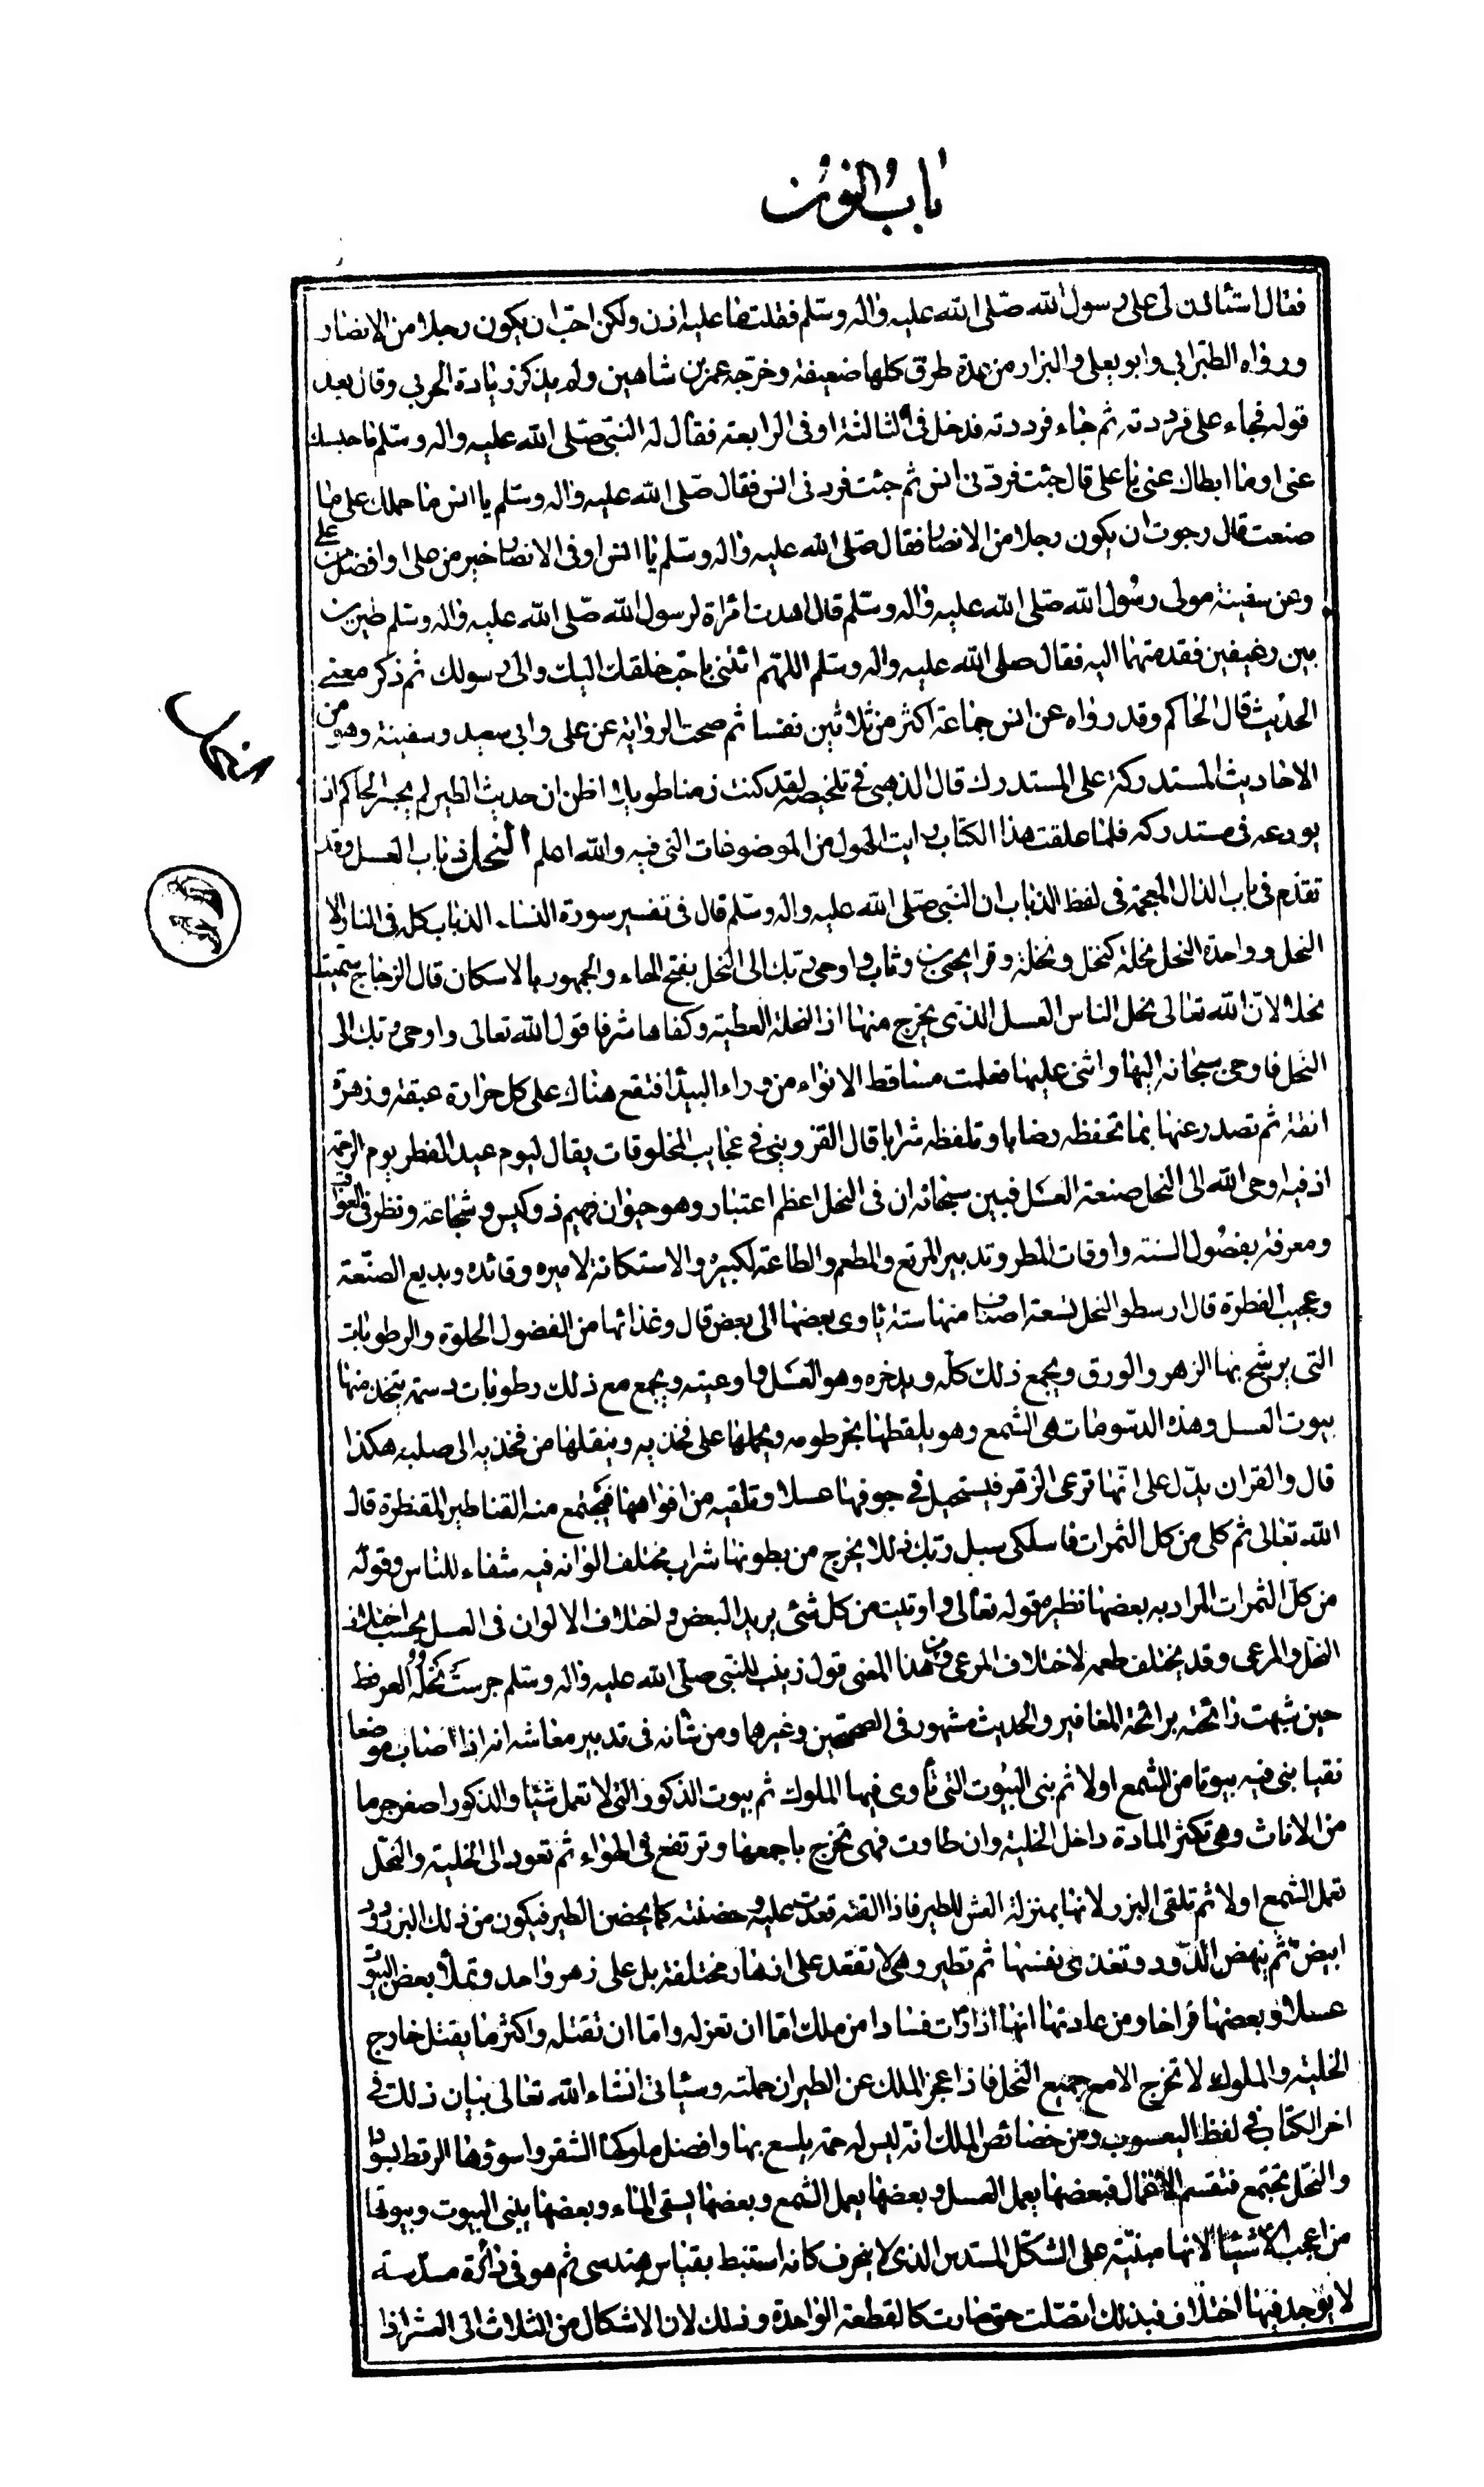 باب النون
فقال استأذن لى على رسول الله صلى الله عليه واله وسلم فقلت ما عليه اذن ولكن احب ان يكون رجلا من الانصار
ورواه الطبرانى وابو يعلى والبزار من عدة طرق كلها ضعيفة وخرجه عمر بن شاهين ولم يذكر زيادة الحربى وقال بعد
قوله فجاء على فرددته ثم جاء فرددته فدخل فى الثالثة او فى الرابعة فقال له النبى صلى الله عليه واله وسلم ما حبسك
عنى او ما ابطاك عنى يا على قال جئت فردنى انس ثم جئت فردنى انس فقال صلى الله عليه واله وسلم يا انس ما حملك على ما
صنعت قال رجوت ان يكون رجلا من الانصار فقال صلى الله عليه واله وسلم يا انس او فى الانصار خير من على او افضل من على
وعن سفينة مولى رسول الله صلى الله عليه واله وسلم قال اهدت امراة لرسول الله صلى الله عليه واله وسلم طيرين
بين رغيفين فقدمتهما اليه فقال صلى الله عليه واله وسلم اللهم ائتنى باحب خلقك اليك والى رسولك ثم ذكر معنى
الحديث قال الحاكم وقد رواه عن انس جماعة اكثر من ثلاثين نفسا ثم صحت الرواية عن على وابى سعيد وسفينة وهو من
الاحاديث المستدركة على المستدرك قال الذهبى فى تلخيصه لقد كنت زمنا طويلا اظن ان حديث الطير لم يجسر الحاكم ان
يودعه فى مستدركه فلما علقت هذا الكتاب رايت الهول من الموضوعات التى فيه والله اعلم النحل ذباب العسل وقد
تقدم فى باب الذال المعجمة فى لفظ الذباب ان النبى صلى الله عليه واله وسلم قال فى تفسير سورة النساء الذباب كله فى النار الا
النحل وواحدة النحل نحلة كنخل ونخلة وقرا يحيى بن وثاب واوحى ربك الى النحل بفتح الحاء والجمهور بالاسكان قال الزجاج سميت
نحلا لان الله تعالى نحل الناس العسل الذى يخرج منها اذ النحلة العطية وكفاها شرفا قول الله تعالى واوحى ربك الى
النحل فاوحى سبحانه اليها واثنى عليها فعلمت مساقط الانواء من وراء البيداء فتقع هناك على كل حرارة عبقة وزهرة
انقة ثم تصدر عنها بما تحفظه رضابا وتلفظه شرابا قال القزوينى فى عجايب المخلوقات يقال ليوم عيد الفطر يوم الرحمة
اذ فيه اوحى الله الى النحل صنعة العسل فبين سبحانه ان فى النحل اعظم اعتبار وهو حيوان فهيم ذو كيس وشجاعة ونظر فى العواقب
ومعرفة بفصول السنة واوقات المطر وتدبير المرتع والمطعم والطاعة لكبيره والاستكانة لاميره وقائده وبديع الصنعة
وعجيب الفطرة قال ارسطو النحل تسعة اصناف منها ستة ياوى بعضها الى بعض قال وغذائها من الفضول الحلوة والرطوبات
التى يرشح بها الزهر والورق ويجمع ذلك كله ويدخره وهو العسل واوعيته ويجمع مع ذلك رطوبات دسمة يتخذ منها
بيوت العسل وهذه الدسومات هى الشمع وهو يلقطها بخرطومه ويحملها على فخذيه وينقلها من فخذيه الى صلبه هكذا
قال والقران يدل على انها ترعى الزهر فيستحيل فى جوفها عسلا وتلقيه من افواهها فيجتمع منه القناطير المقنطرة قال
الله تعالى ثم كلى من كل الثمرات فاسلكى سبل ربك ذللا يخرج من بطونها شراب مختلف الوانه فيه شفاء للناس وقوله
من كل الثمرات المراد به بعضها نظيره قوله تعالى واوتيت من كل شئ يريد البعض واختلاف الالوان فى العسل بحسب اختلاف
النحل والمرعى وقد يختلف طعمه لاختلاف المرعى ومن هذا المعنى قول زينب للنبى صلى الله عليه واله وسلم جرست نحله العرفط
حين شبهت رائحته برائحة المغافير والحديث مشهور فى الصحيحين وغيرها ومن شانه فى تدبير معاشه انه اذا اصاب موضعا
نقيا بنى فيه بيوتا من الشمع اولا ثم بنى البيوت التى تأوى فيها الملوك ثم بيوت الذكور التى لا تعمل شيئا والذكور اصغر جرما
من الاناث وهى تكثر المادة داخل الخلية وان طارت فهى تخرج باجمعها وترتفع فى الهواء ثم تعود الى الخلية والنحل
تعمل الشمع اولا ثم تلقى البزر لانها بمنزلة العش للطير فاذا القته قعدت عليه وحضنته كما يحضن الطير فيكون من ذلك البزر دود
ابيض ثم ينهض الدود وتغذى نفسها ثم تطير وهى لا تقعد على ازهار مختلفة بل على زهر واحد وتملأ بعض البيوت
عسلا وبعضها فراخا ومن عادتها انها اذا رات فسادا من ملك اما ان تعزله واما ان تقتله واكثر ما يقتل خارج
الخلية والملوك لا تخرج الا مع جميع النحل فاذا عجز الملك عن الطيران حملته وسياتى انشاء الله تعالى بيان ذلك فى
اخر الكتاب فى لفظ اليعسوب ومن خصائص الملك انه ليس له حمة يلسع بها وافضل ملوكها الشقر واسوؤها الرقط بسواد
والنحل تجتمع فتقسم الاعمال فبعضها يعمل العسل وبعضها يعمل الشمع وبعضها يسقى الماء وبعضها يبنى البيوت وبيوتها
من اعجب الاشياء لانها مبنية على الشكل المسدس الذى لا ينحرف كانه استنبط بقياس هندسى ثم هو فى دائرة مسدسة
لا يوجد فيها اختلاف فبذلك اتصلت حتى صارت كالقطعة الواحدة وذلك لان الاشكال من الثلاث الى العشر اذا
النحل